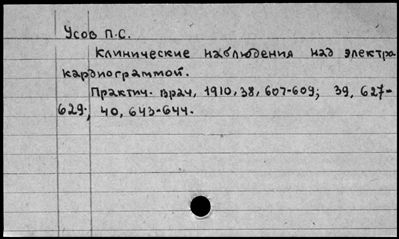 Усов П.С.
Клинические наблюдения над электро
кардиограммой.
Практич. врач, 1910, 38, 607-609; 39, 627-
629; 40, 643-644.